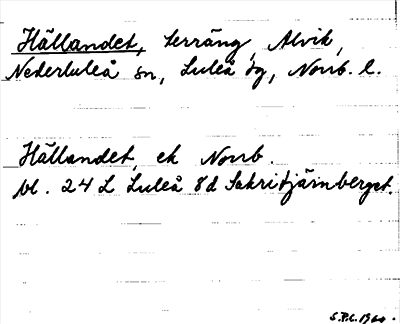 Hällandet, terräng, Alvik,
Nederluleå sn, Luleå tg, Norrb. l.
Hällandet, ek Norrb.
bl. 24 L Luleå 8d Sakritjärnberget.
S.P.C. 1960.